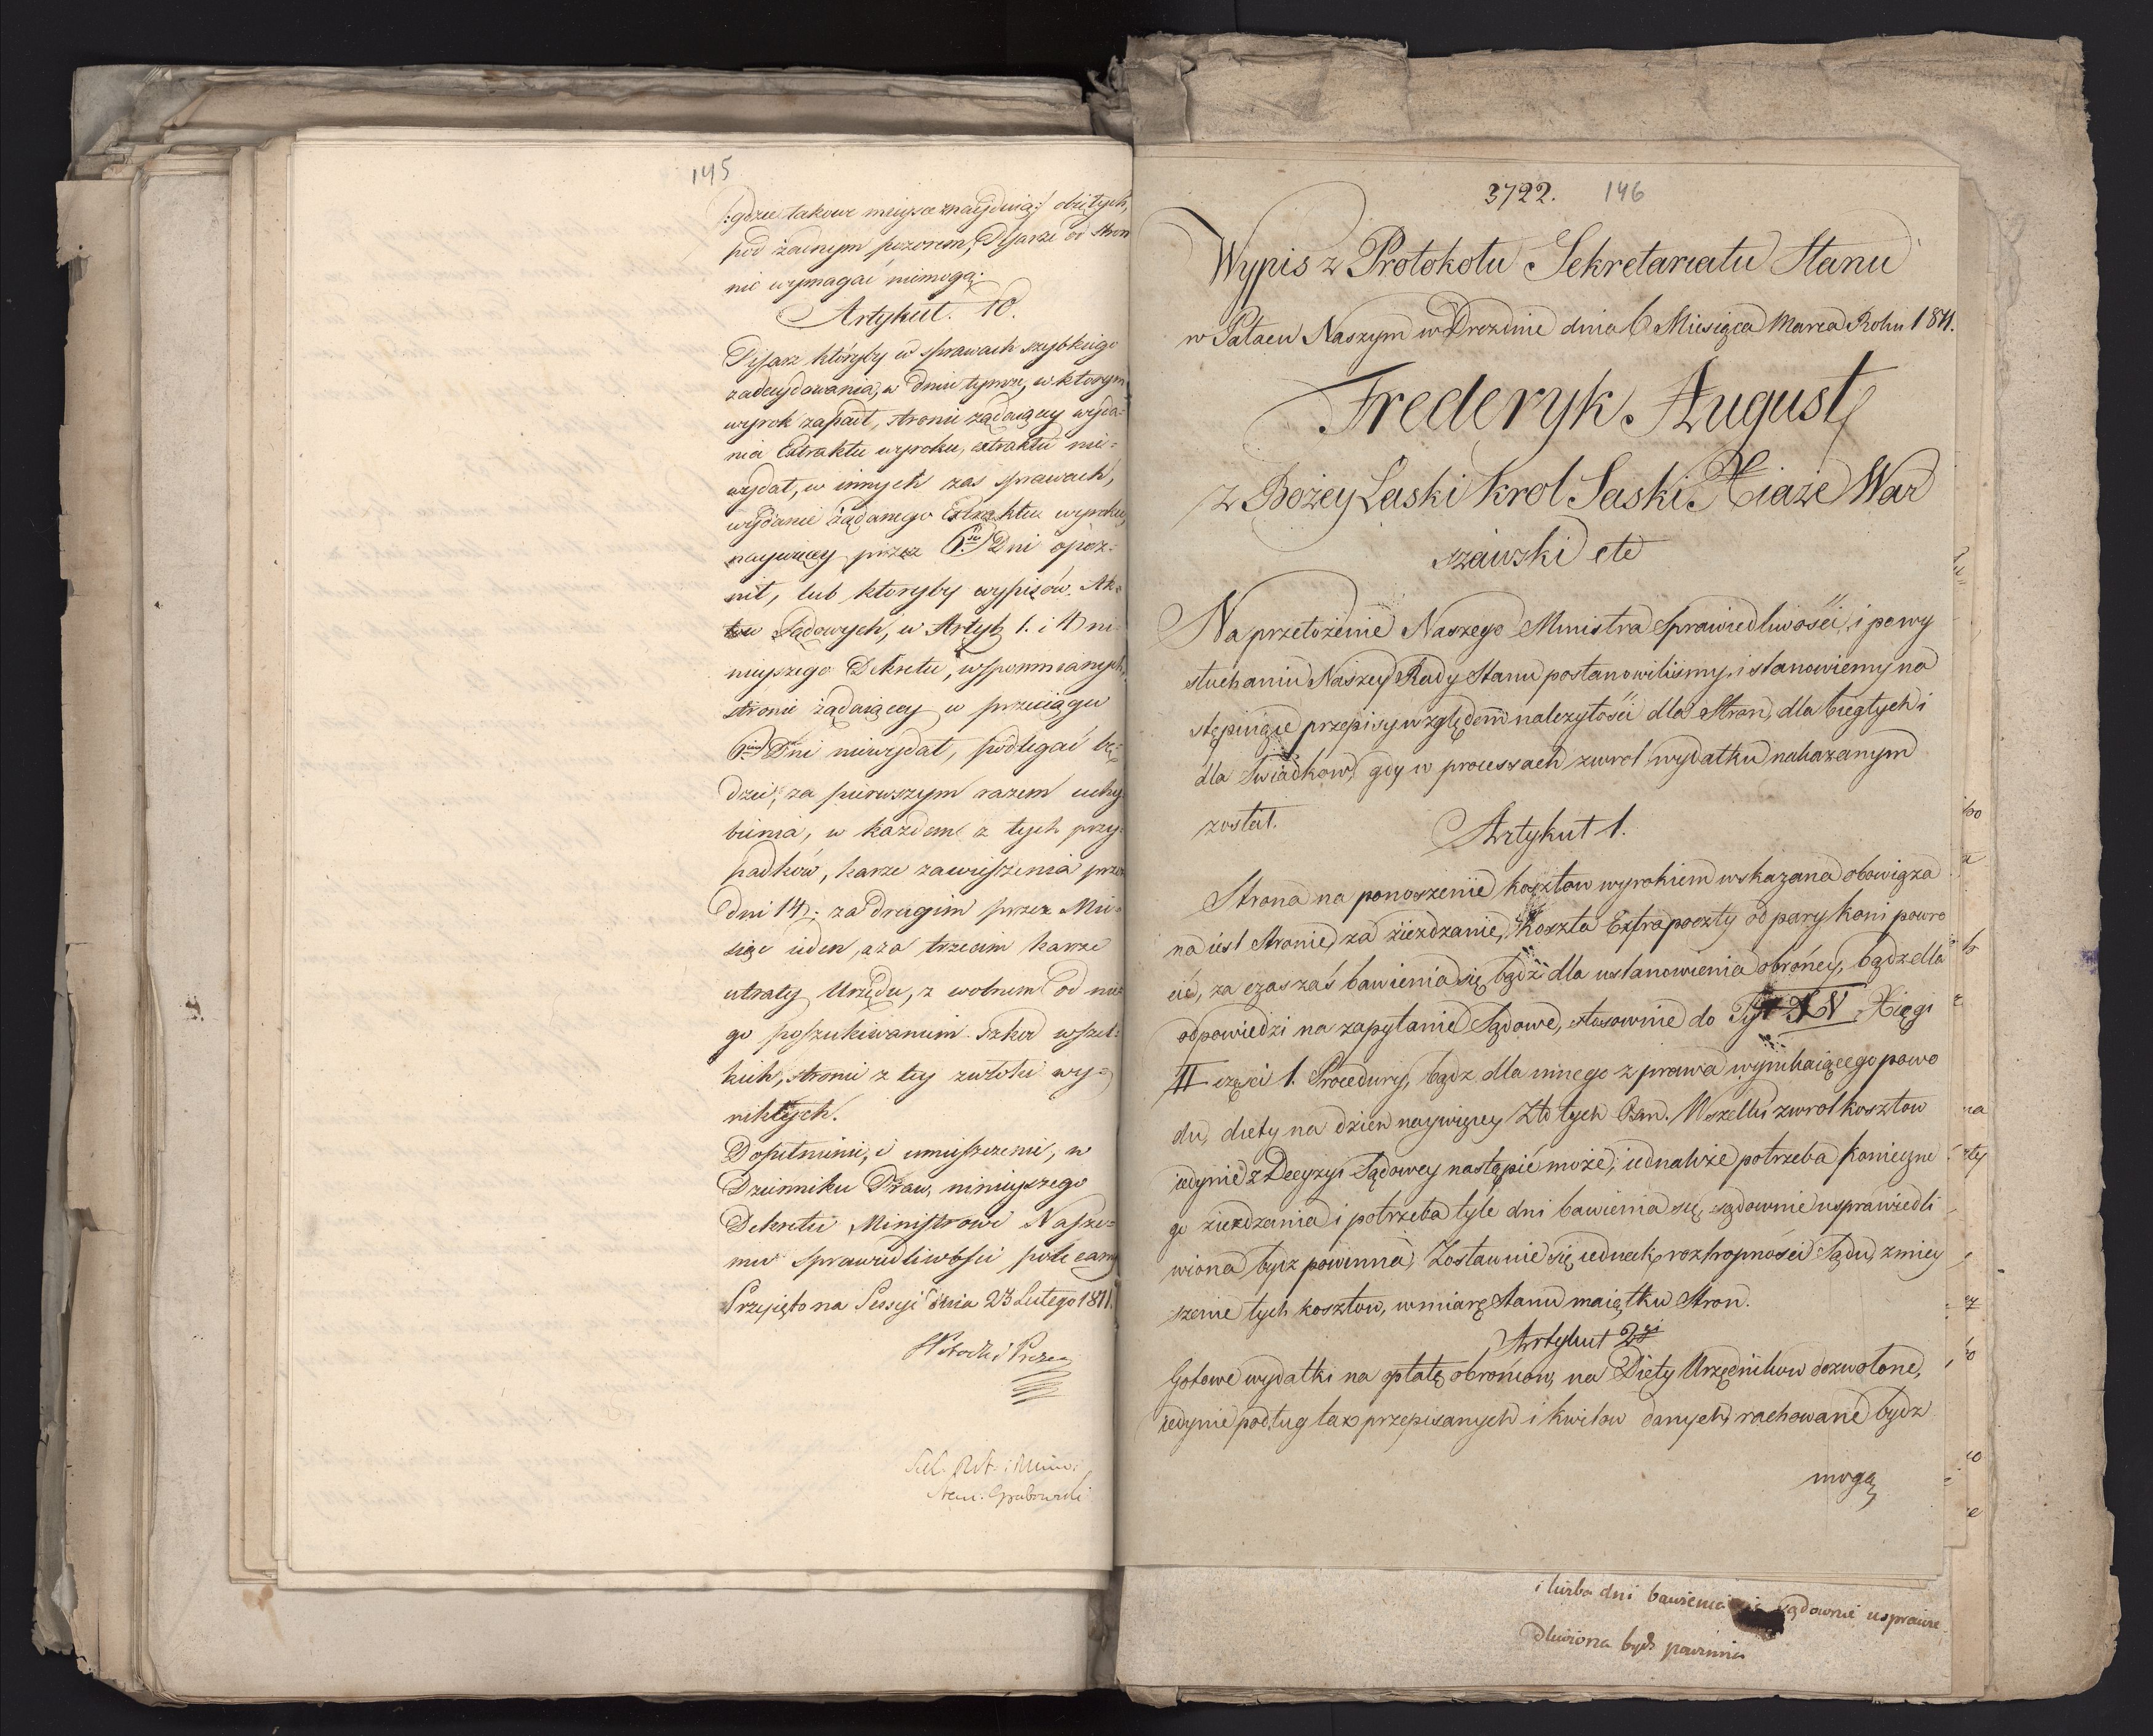 145
/:gdzie takowe mieysce znayduią:/ obiętych,
pod żadnym pozorem, Pisarze od stron
nie wymagać niemogą.
Artykuł. 10.
Pisarz któryby w sprawach szybkiego
zadecydowania, w dniu tymże, w którym
wyrok zapadł, stronie żądaiącey wyda-
nia Extraktu wyroku, extraktu nie-
wydał, w innych zaś sprawach,
wydanie żądanego Extraktu wyroku,
naywięcey przez 6. Dni opóź-
nił, lub któryby wypisów Ak-
tów Sądowych, w Artyk 1. i 4 ni-
nieyszego Dekretu, wspomnianych,
stronie żądaiącey w przeciągu
6 Dni niewydał, podlegać bę-
dzie, za pierwszym razem uchy-
bienia, w każdem z tych przy-
padków, karze zawieszenia przez
Dni 14. za drugim przez Mie-
siąc ieden, a za trzecim karze
utraty Urzędu, z wolnem od nie-
go poszukiwaniem szkod wszel-
kich, stronie z tey zwłoki wy-
nikłych.
Dopełnienie, i umieszczenie, w
Dzienniku Praw, ninieyszego
Dekretu Ministrowi Nasze-
mu sprawiedliwości polecamy
Przyięto na Sessyi dnia 23 Lutego 1811.
Prezes
Grabowski
3722. 146
Wypis z Protokołu Sekretariatu Stanu
w Pałacu Naszym w Dreznie dnia 6 Miesiąca Marca Roku 1811.
Frederyk August
z Bożey Łaski Krol Saski Xiaże War
szawski etc
Na przełożenie Naszego Ministra Sprawiedliwości, i po wy
słuchaniu Naszey Rady Stanu postanowiliśmy i stanowiemy na
stępuiące przepisy względem należytości dla Stron, dla biegłych i
dla Swiadkow, gdy w processach zwrot wydatku nakazanym
został.
Artykuł 1.
Strona na ponoszenie kosztow wyrokiem wskazana obowiąza
na iest Stronie, za ziezdzanie, Koszta Extrapoczty od pary koni powro
cić, za czas zaś bawienia się, bądź dla ustanowienia obrońcy, bądz dla
odpowiedzi na zapytanie Sądowe, stosownie do Tyt XV Xięgi
II części 1. Procedury, bądz dla innego z prawa wynikaiącego powo
du, diety na dzien naywięcey Złotych Ośm. Wszelki zwrot kosztow
iedynie z Decyzyi Sądowey nastąpić może, iednakże potrzeba konieczne
go ziezdzania i potrzeba tyle dni bawienia się, sądownie usprawiedli
wiona bydz powinna, Zostawuie się iednak roztropności Sądu, zmiey
szenie tych kosztow, w miarę Stanu maiątku Stron.
Artykuł 2gi
Gotowe wydatki na opłatę obrońcow, na Diety Urzędnikow dozwolone,
iedynie podług tax przepisanych i kwitow danych, rachowane bydz
mogą
i liczba dni bawienia się sądownie usprawie
dliwiona bydz powinna